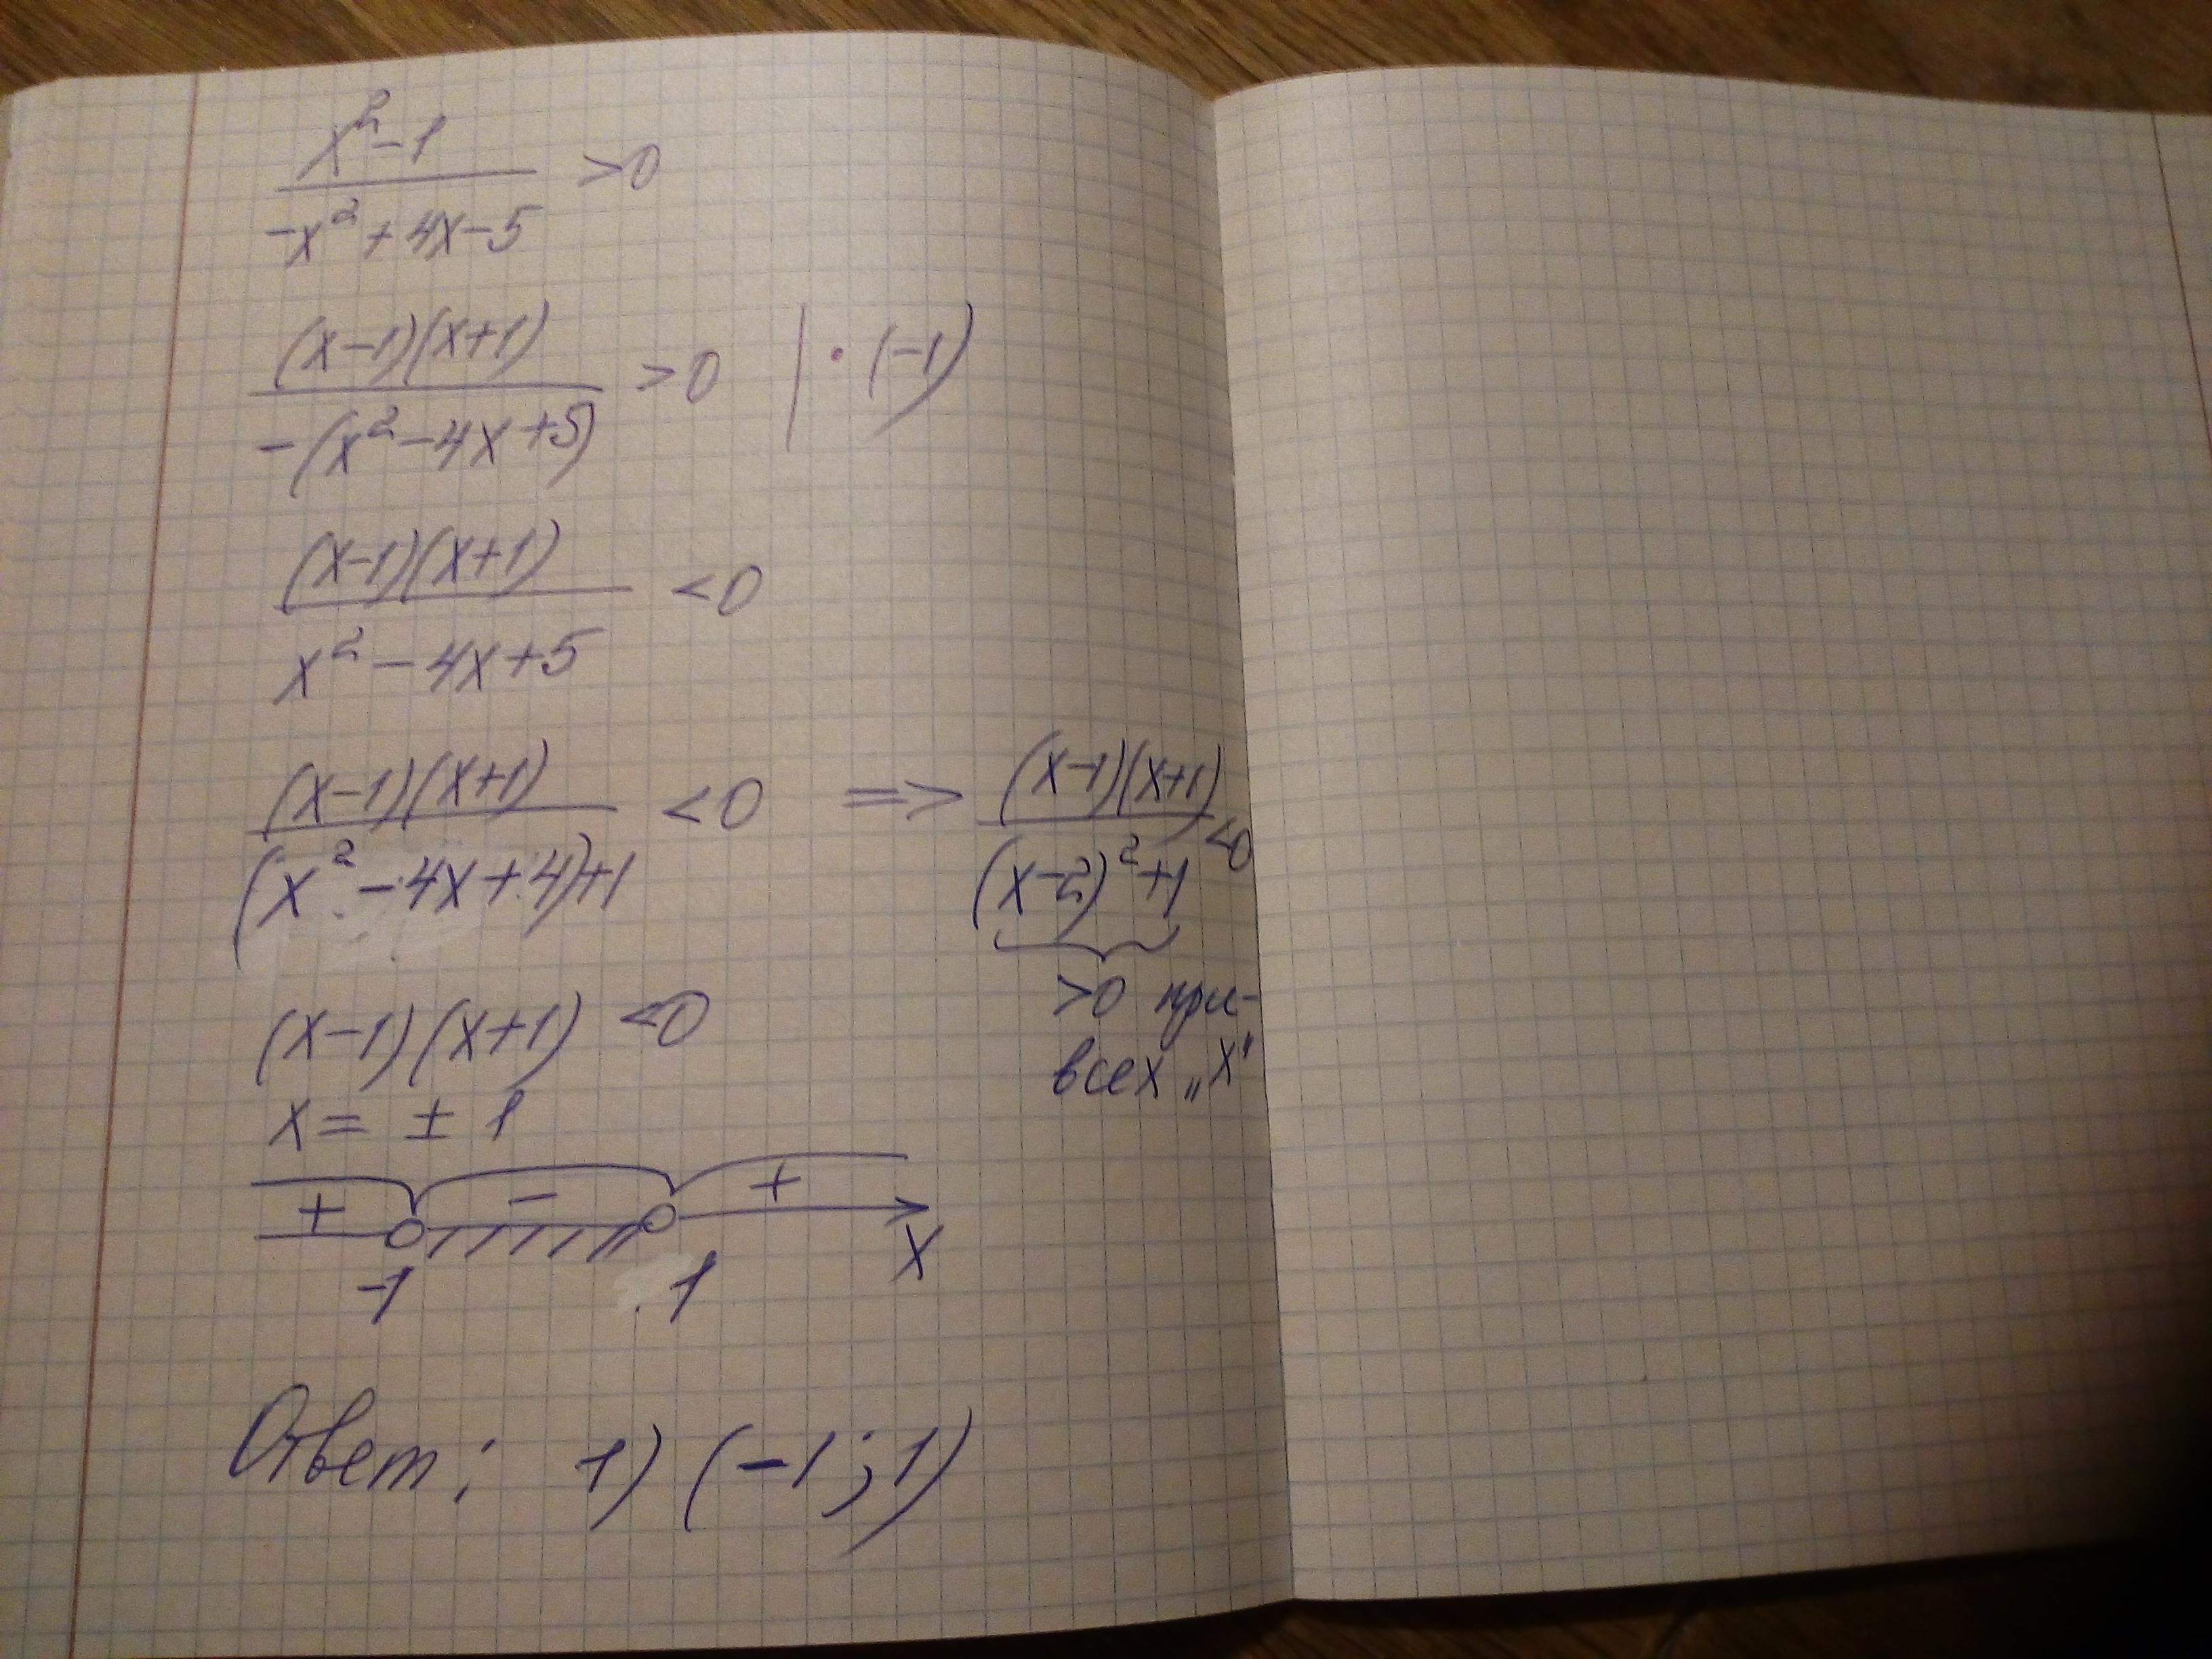 x² - 1
/ -x² + 4x - 5 > 0
(x-1)(x+1)
/ -(x² - 4x + 5) > 0 | · (-1)
(x-1)(x+1)
/ x² - 4x + 5 < 0
(x-1)(x+1) / (x² - 4x + 4) + 1 < 0 => (x-1)(x+1) / (x-2)² + 1 < 0
>0 при
всех „x"
(x-1)(x+1) < 0
x = ± 1
+ - +
-1 1 x
Ответ: 1) (-1; 1)